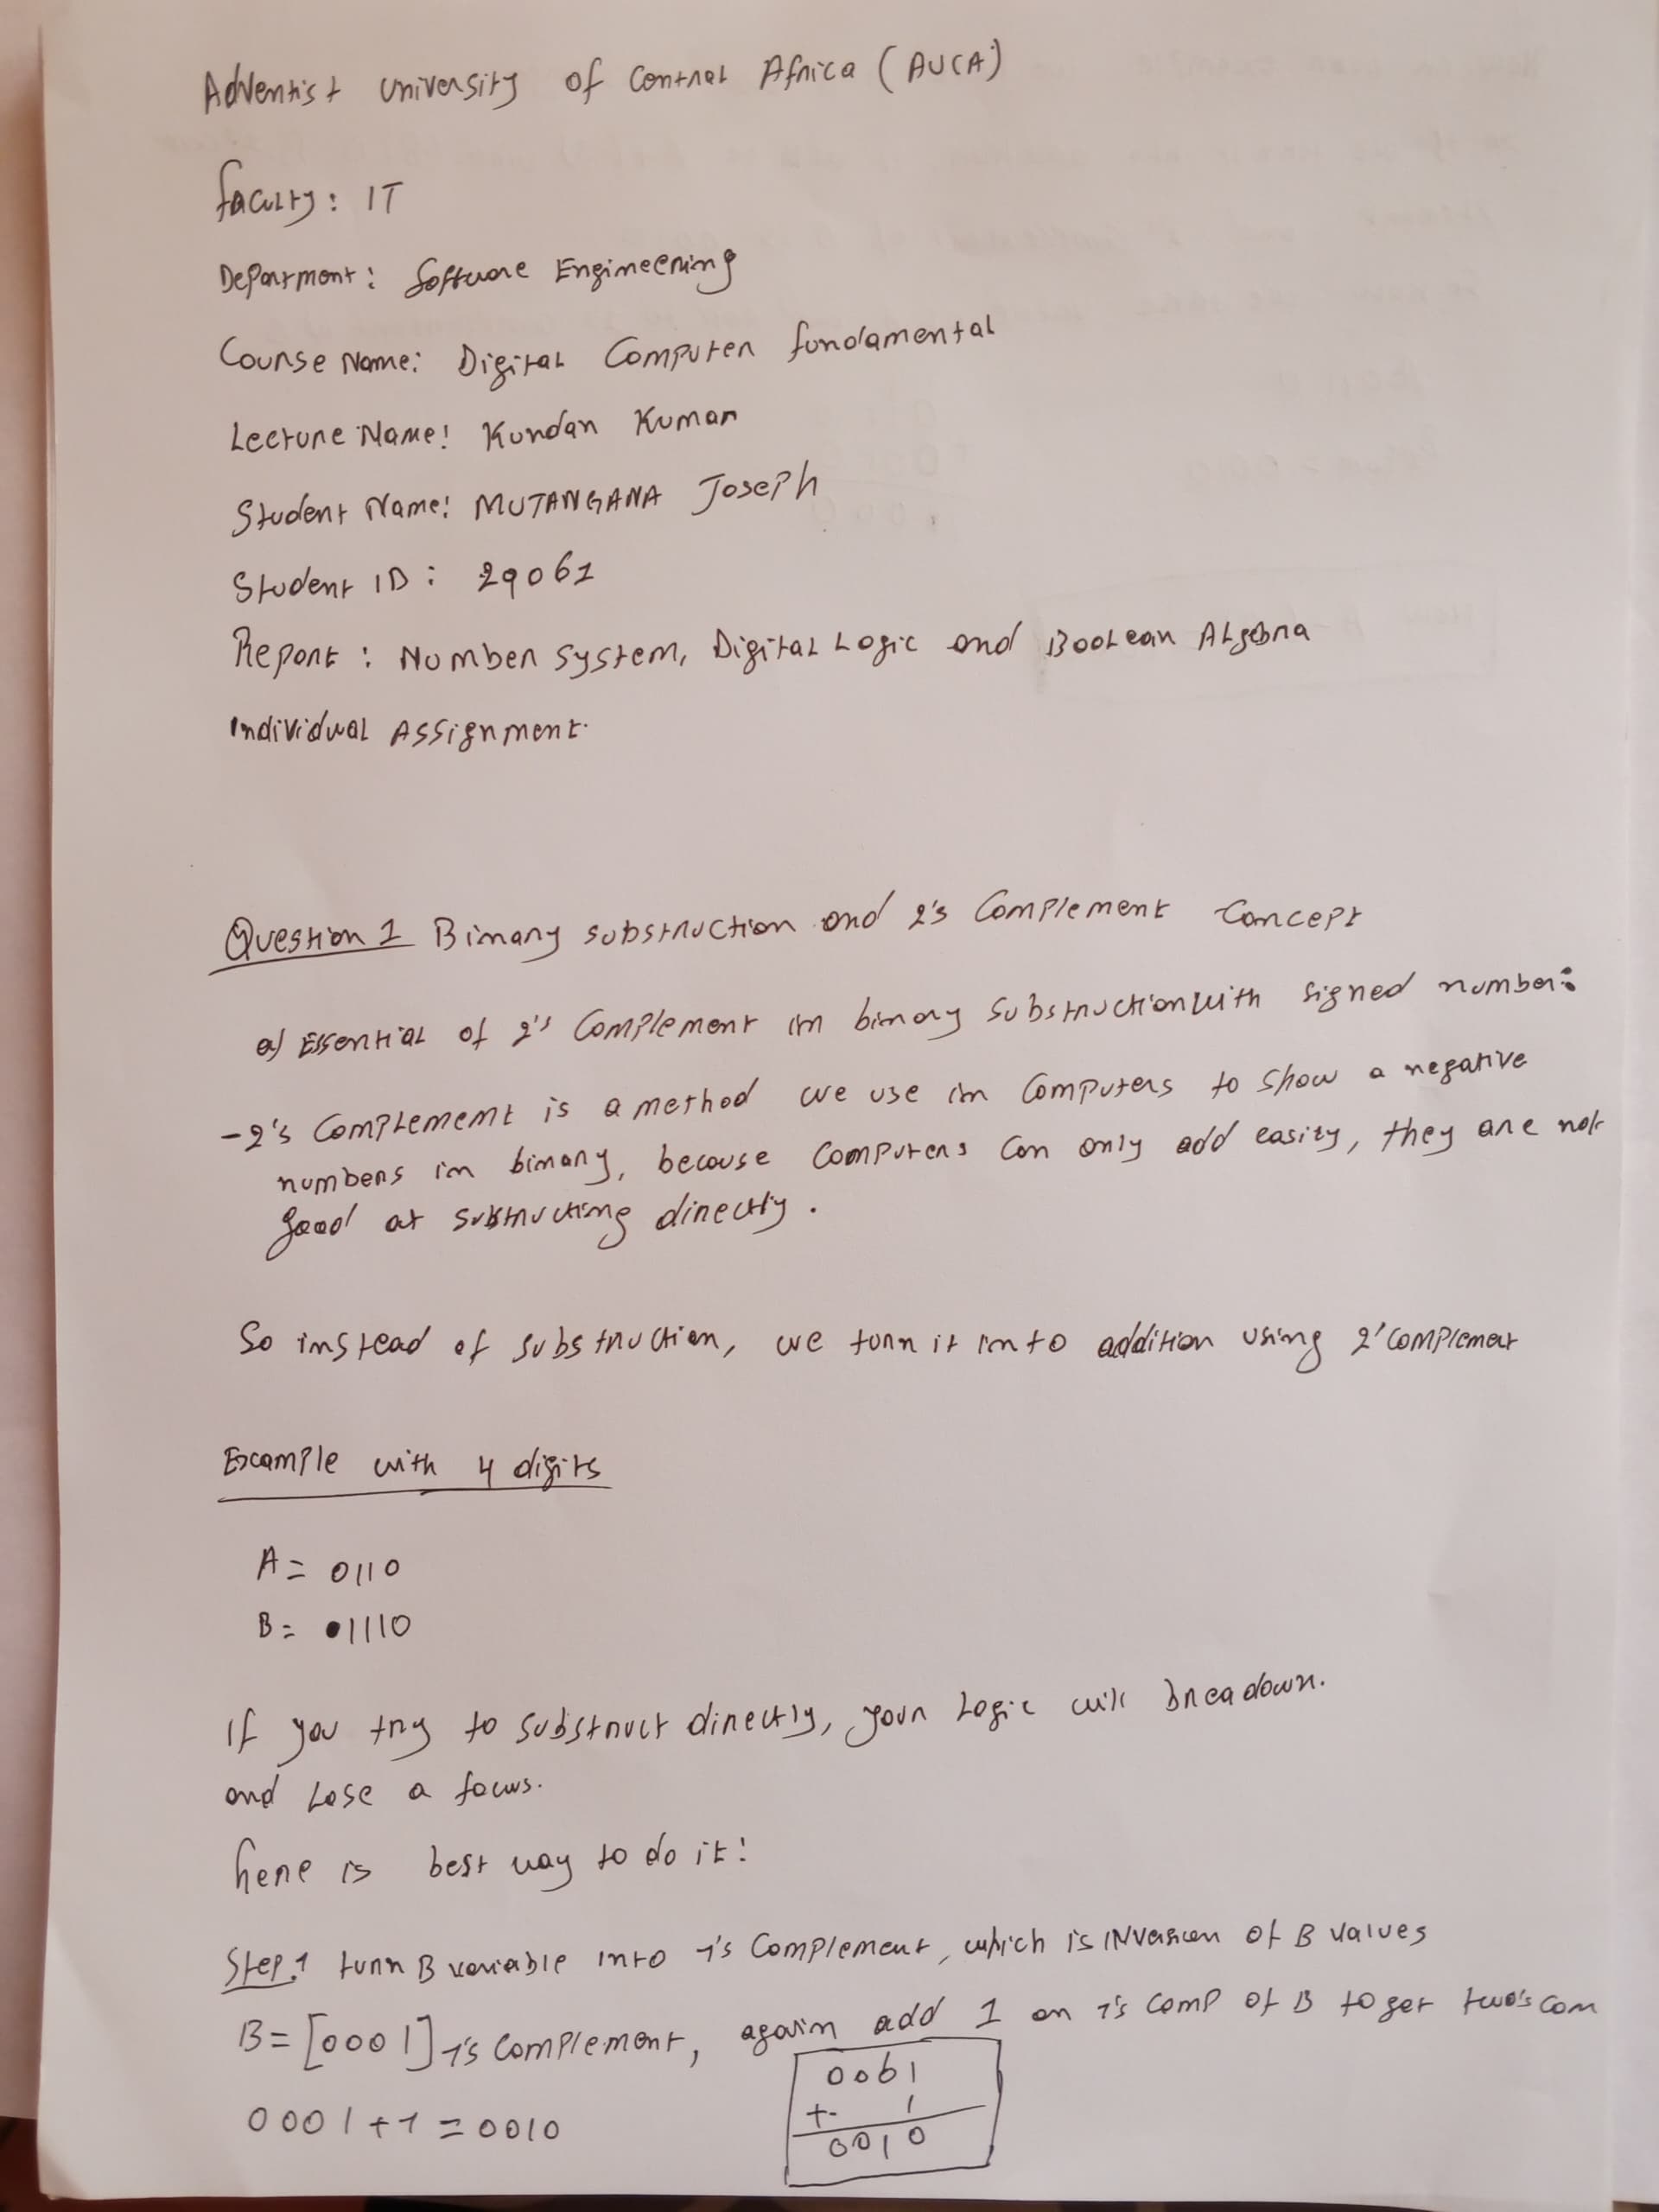 Adventist University of Central Africa (AUCA)
faculty: IT
Deparment: Software Engineering
Course Name: Digital Computer fundamental
Lecture Name: Kundan Kumar
Student Name: MUTANGANA Joseph
Student ID: 29061
Report: Number system, Digital Logic and Boolean Algebra
Individual Assignment.
Question 1 Binary substruction and 2's Complement Concept
a) Essential of 2's Complement in binary substruction with signed number:
-2's Complement is a method we use in Computers to show a negative
numbers in binary, because Computers Can only add easity, they are not
good at substructing directly.
So instead of substruction, we turn it into addition using 2'complement
Example with 4 digits
A = 0110
B = 1110
If you try to substruct directly, your Logic will breadown.
and Lose a focus.
here is best way to do it:
Step.1 turn B variable into 1's Complement, which is INversion of B values
B = [0001] 1's complement, again add 1 on 1's comp of B to get two's com
0001+1 = 0010
0001
+ 1
0010